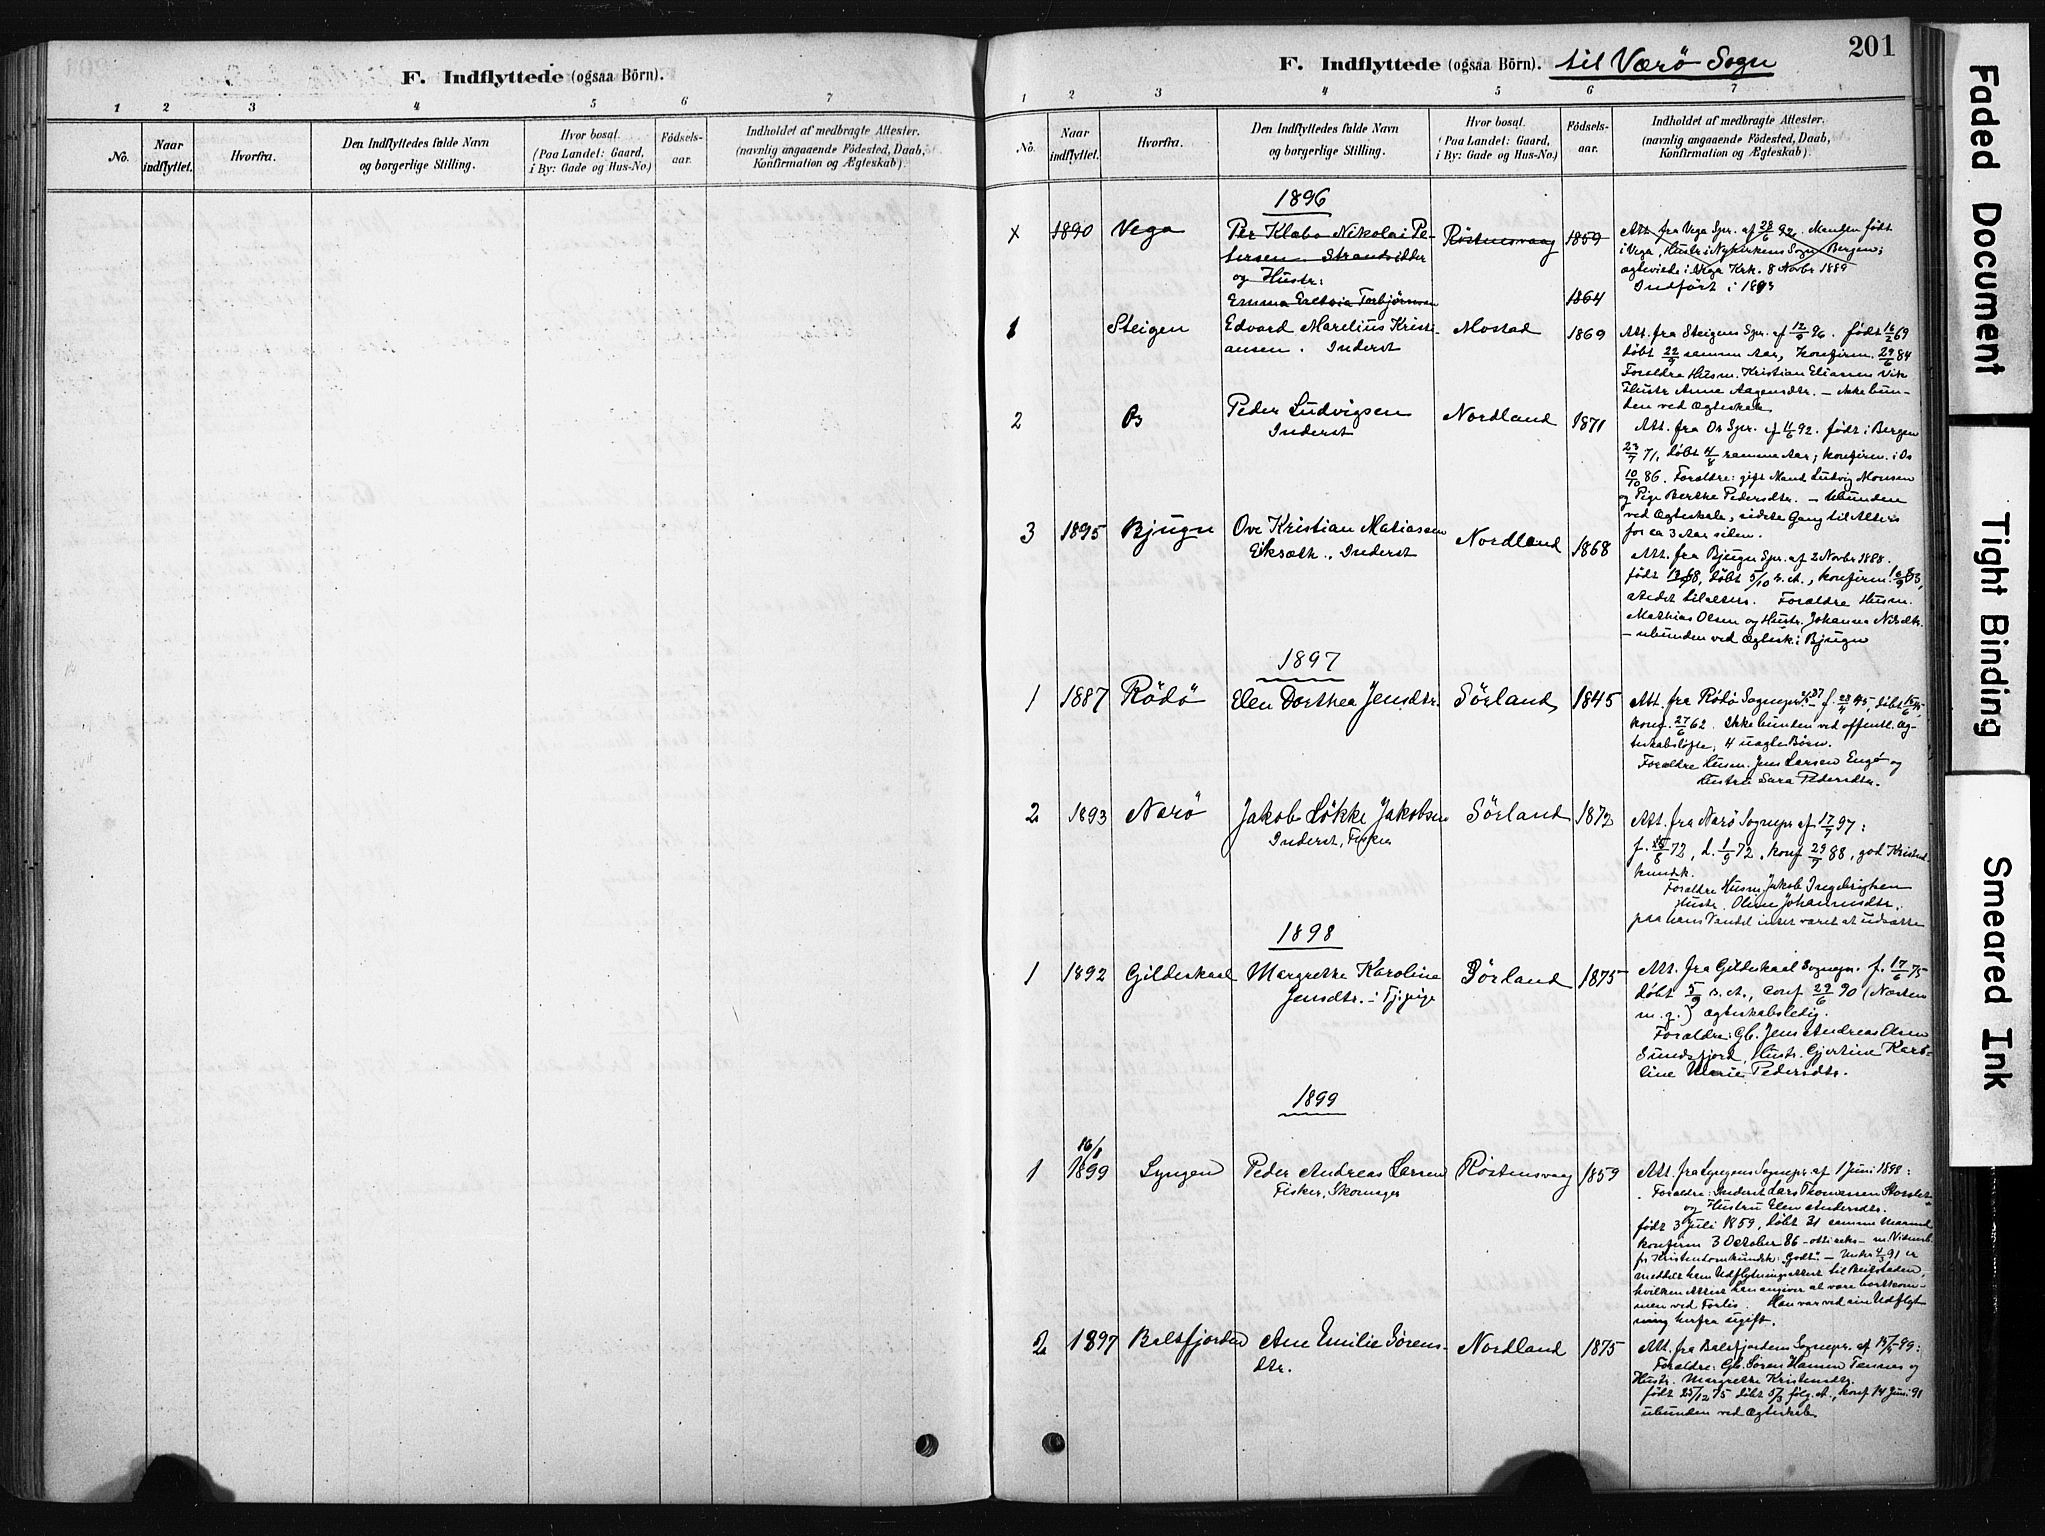 F. Indflyttede (ogsaa Börn).
1 2 3 4 5 6 7
No. Naar indflyttet. Hvorfra. Den Indflyttedes fulde Navn og borgerlige Stilling. Hvor bosat. (Paa Landet: Gaard, i By: Gade og Hus-No.) Födsels-aar. Indholdet af medbragte Attester. (navnlig angaaende Födested, Daab, Konfirmation og Ægteskab).
201
F. Indflyttede (ogsaa Börn). til Værö Sogn
1 2 3 4 5 6 7
No. Naar indflyttet. Hvorfra. Den Indflyttedes fulde Navn og borgerlige Stilling. Hvor bosat. (Paa Landet: Gaard, i By: Gade og Hus-No.) Födsels-aar. Indholdet af medbragte Attester. (navnlig angaaende Födested, Daab, Konfirmation og Ægteskab).
1896
x 1890 Vega Per Klabo Nikolai Pe- Röstnesvaag 1859 Att. fra Vega Spr. af 28/6 92. Manden født
tersen. Strandsidder i Vega, Hustr. i Nykirkens Sogn Bergen;
og Hustr: ægteviede i Vega Krk. 8 Novbr 1889
Emma Torbjørnsen 1864 Indført i 1893
1 Steigen Edvard Marelius Kristi- Mostad 1869 Att. fra Steigens Spr. af 12/9 96. født 12/2 69
ansen. Inderst døbt 22/9 samme Aar, Konfirm. 29/6 84
Forældre Husm. Kristian Eliassen Vik
Hustr Anne Aagensdtr. – ikke bun-
den ved Ægteskab
2 Os Peder Ludvigsen Nordland 1871 Att. fra Os Spr. af 11/6 92. født i Bergen
Inderst 23/7 71, døbt 4/8 samme Aar; konfirm. i Os
10/10 86. Forældre: gift Mand Ludvig Monsen
og Pige Berthe Pedersdtr. – Ubunden
ved Ægteskab, sidste Gang til Alters
for ca 3 Aar siden.
3 1895 Bjugn Ove Kristian Matiassen Nordland 1868 Att. fra Bjugn Spr. af 2 Novbr 1888.
Eksæth., Inderst født 68, døbt 5/10 s. A., konfirm. 16/9 83,
Forældre Husm.
Mathias Olsen og Hustr. Johanna Nilsdtr.
– ubunden ved Ægtesk. i Bjugn
1897
1 1887 Rödö Elen Dorthea Jensdtr. Sörland 1845 Att. fra Rødø Sognepr. f. 23/4 45, døbt 15/6
konf. 27/6 62. Ikke bunden ved offentl. Æg-
teskabsløfte, 4 uægte Børn.
Forældre Husm. Jens Larsen Engø og
Hustru Sara Pedersdtr.
2 1893 Nærö Jakob Løkke Jakobsen Sörland 1872 Att. fra Nærö Sognepr af 17/7 97:
Inderst, Fisker f. 15/8 72, d. 1/9 72, konf. 29/7 88, god Kristend.
kundsk.
Forældre Husm. Jakob Ingebrigtsen
Hustr. Oline Johannesdtr.
paa hans Vandel intet været at udsætte
1898
1 1892 Gildeskaal Margrethe Karolina Sörland 1875 Att. fra Gildeskaal Sognepr. f. 17/6 75
Jensdtr. – Tj.pige døbt 5/9 s. A., Conf 29/6 90 (Næsten
m. g.) Ægteskabsledig.
Forældre: Gb. Jens Andreas Olsen
Sundsfjord, Hustr. Gjertine Karo-
line Marie Pedersdtr.
1899
16/1
1 1899 Lyngen Peder Andreas Larsen Röstnesvaag 1859 Att. fra Lyngens Sognepr. af 1 Juni 1898:
Fisker, Skomager Forældre: Inderst Lars Thomassen Storslet
og Hustru Elen Andersdtr.
født 3 Juli 1859, døbt 31 samme Maaned
konfirm 3 October 86 – m. Vidnesb.
for Kristendomskundsk: Godt – Under 4/3 91 er
meddelt ham Udflytningsattest til Beitstaden,
hvilken Attest han angiver at være bortkom-
men ved Forlis. Han var ved sin Udflyt
ning herfra ugift.
2 1897 Balsfjorden Ane Emilie Sørens- Nordland 1875 Att. fra Balsfjordens Sognepr. af 15/5 99:
dtr. Forældre: Gb. Søren Hansen Tennes og
Hustr. Margrethe Kristensdtr.
født 25/12 75 døbt 5/3 følg. A., konf 14 Juni 91
ubunden ved Ægteskab
Faded Document
Tight Binding
Smeared Ink